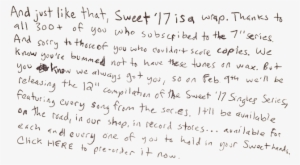 And just like that, Sweet '17 is a wrap. Thanks to
all 300+ of you who subscribed to the 7" series.
And sorry to those of you who couldn't score copies. We
know you're bummed not to have these tunes on wax. But
you know we always got you, so on Feb 9th we'll be
releasing the 12" compilation of the Sweet '17 Singles Series,
featuring every song from the series. It'll be available
on the road, in our shop, in record stores... available for
each and every one of you to hold in your sweet hands.
Click HERE to pre-order it now.